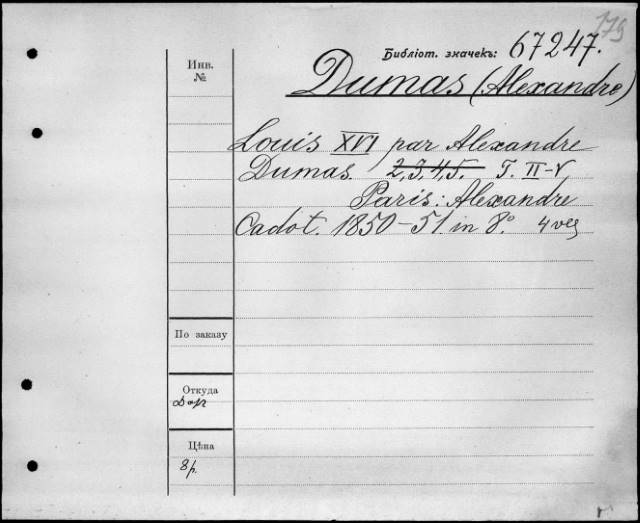 179
Библіот. значекъ: 67247.
Инв.
№
Dumas (Alexandre)
Louis XVI par Alexandre
Dumas. 2,3,4,5. T. II-V
Paris: Alexandre
Cadot. 1850-51. in 8º.
По заказу
Откуда
Даръ
Цѣна
8 р.